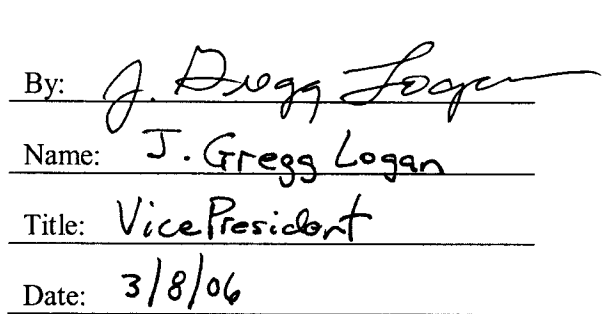 By: J. Gregg Logan
Name: J. Gregg Logan
Title: Vice President
Date: 3/8/06